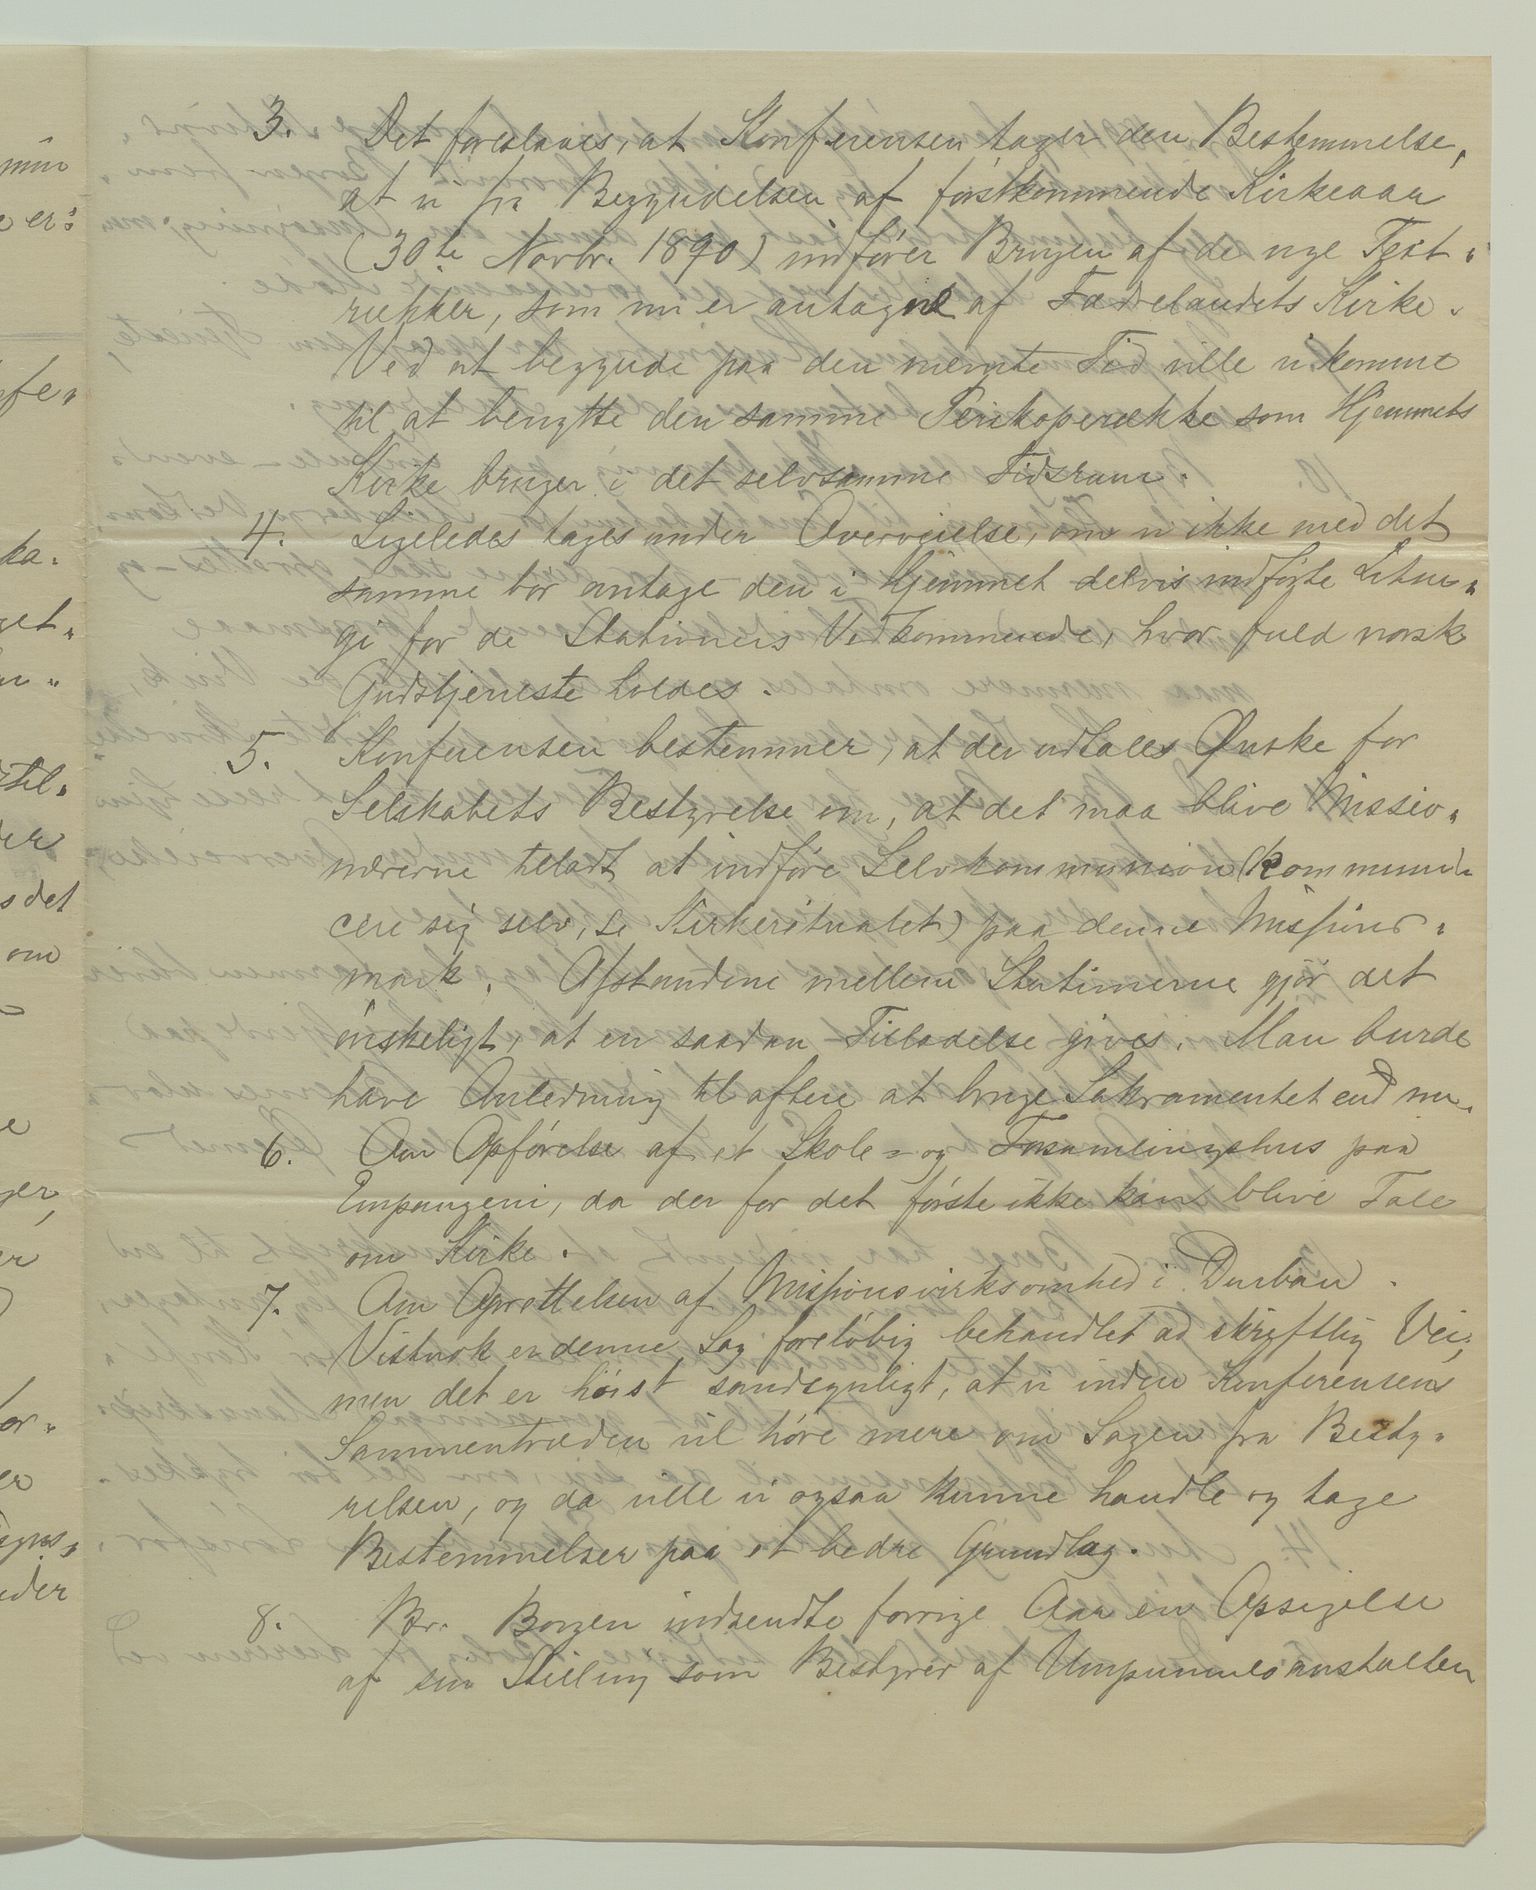 3. Det foreslaaes, at Konferensen tager den Bestemmelse,
at vi fra Begyndelsen af førstkommende Kirkeaar
(30te Novbr. 1890) indfører Brugen af de nye Text-
rækker, som nu er antagne af Fædrelandets Kirke.
Ved at begynde paa den nævnte Tid ville vi komme
til at benytte den samme Perikoperække som Hjemmets
Kirke bruger i det selvsamme Tidsrum.
4. Ligeledes tages under Overveielse, om vi ikke med det
samme bør antage den i Hjemmet delvis indførte Litur-
gi for de Stationers Vedkommende, hvor fuld norsk
Gudstjeneste holdes.
5. Konferensen bestemmer, at der udtales Ønske for
Selskabets Bestyrelse om, at det maa blive Missio-
nærerne tiladt at indføre Selvkommunion (kommuni-
cere sig selv, se Kirkeritualet) paa denne Missions-
mark. Afstandene mellem Stationerne gjør det
ønskeligt, at en saadan Tilladelse gives. Man burde
have Anledning til oftere at bruge Sakramentet end nu.
6. Om Opførelse af et Skole- og Forsamlingshus paa
Empangeni, da der for det første ikke kan blive Tale
om Kirke.
7. Om Oprettelsen af Missionsvirksomhed i Durban.
Vistnok er denne Sag foreløbig behandlet ad skriftlig Vei,
men det er høist sandsynligt, at vi inden Konferensens
Sammentræden vil høre mere om Sagen fra Besty-
relsen, og da ville vi ogsaa kunne handle og tage
Bestemmelser paa et bedre Grundlag.
8. Br. Borgen indsendte forrige Aar en Opsigelse
af sin Stilling som Bestyrer af Umpumuloanstalten